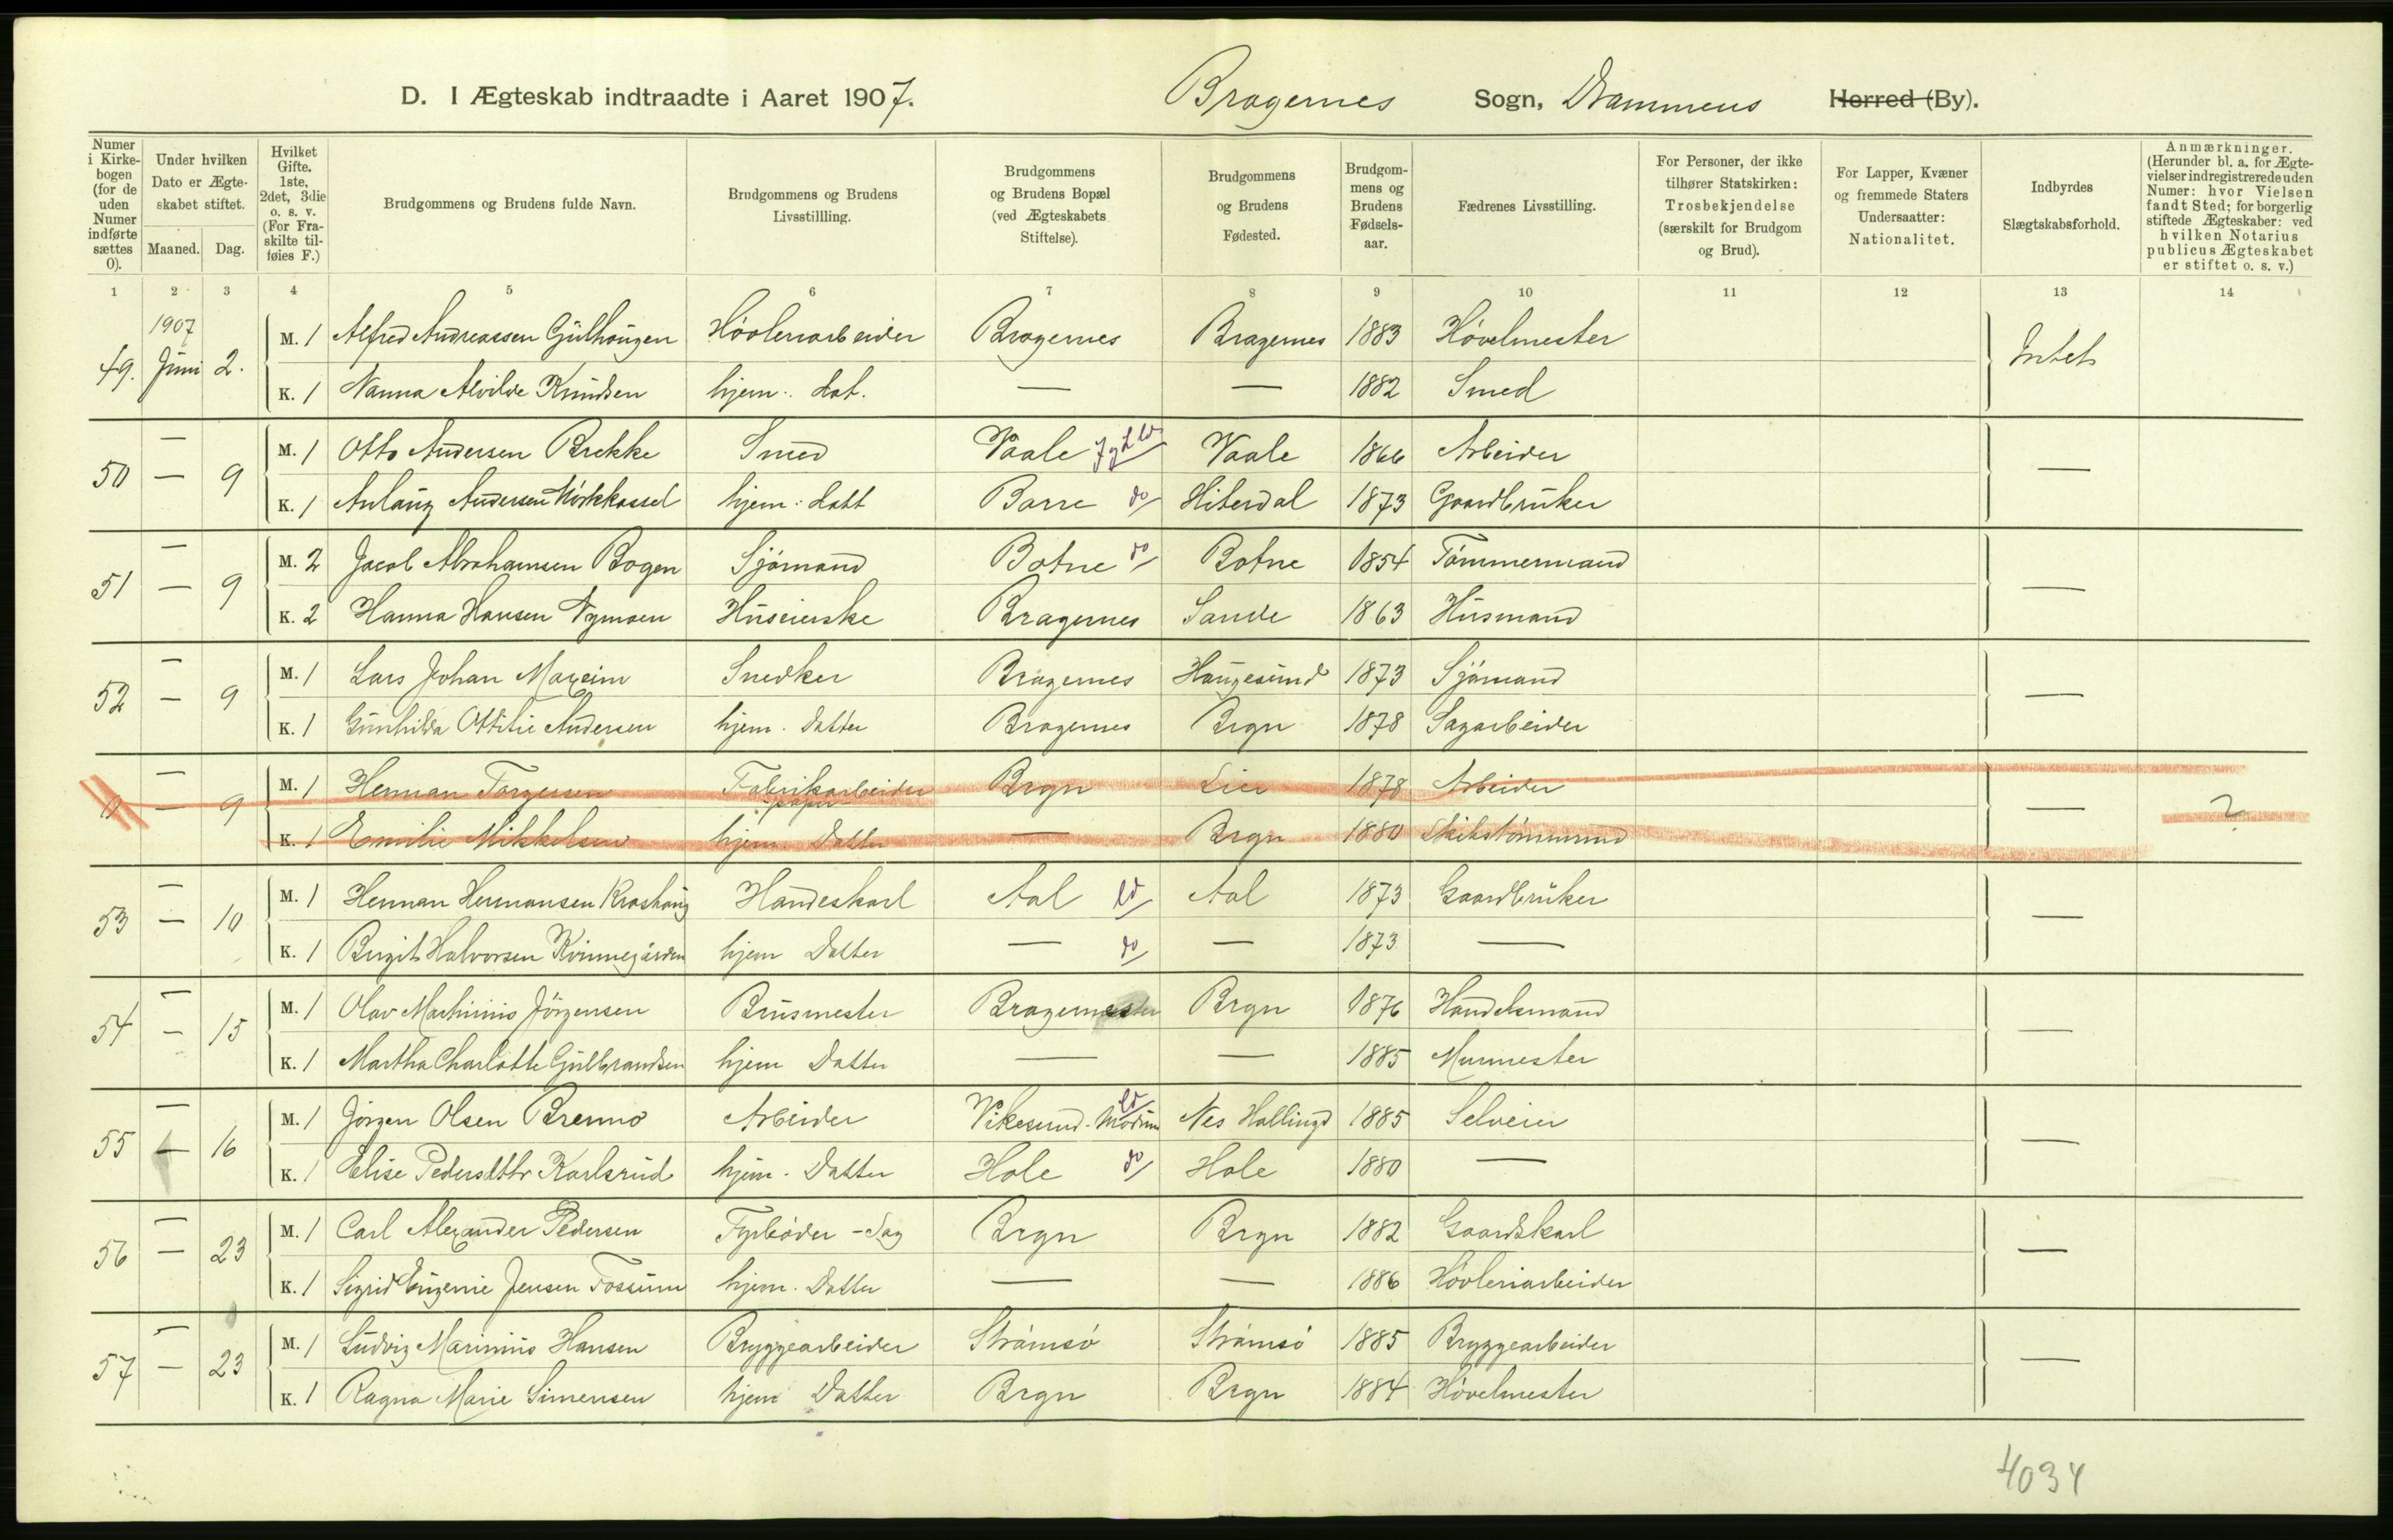 D. I Ægteskab indtraadte i Aaret 1907. Bragernes Sogn, Drammens Herred (By).
Numer i Kirkebogen (for de uden Numer indførte sættes 0).
Under hvilken Dato er Ægteskabet stiftet.
Maaned. Dag.
Hvilket Gifte, 1ste, 2det, 3die o. s. v. (For Fraskilte tilføies F.)
Brudgommens og Brudens fulde Navn.
Brudgommens og Brudens Livsstillling.
Brudgommens og Brudens Bopæl (ved Ægteskabets Stiftelse).
Brudgommens og Brudens Fødested.
Brudgommens og Brudens Fødselsaar.
Fædrenes Livsstilling.
For Personer, der ikke tilhører Statskirken: Trosbekjendelse (særskilt for Brudgom og Brud).
For Lapper, Kvæner og fremmede Staters Undersaatter: Nationalitet.
Indbyrdes Slægtskabsforhold.
Anmærkninger. (Herunder bl. a. for Ægtevielser indregistrerede uden Numer: hvor Vielsen fandt Sted; for borgerlig stiftede Ægteskaber: ved hvilken Notarius publicus Ægteskabet er stiftet o. s. v.)
1 2 3 4 5 6 7 8 9 10 11 12 13 14
1907
49. Juni 2. M. 1 Alfred Andreassen Gulhaugen Høvleriarbeider Bragernes Bragernes 1883 Høvelmester Intet
K. 1 Nanna Alvilde Knudsen hjem. Dat. — — 1882 Smed
50 — 9 M. 1 Otto Andersen Brekke Smed Vaale Vaale 1866 Arbeider —
K. 1 Anlaug Andersen hjem: Datt Borre do Hiterdal 1873 Gaardbruker
51 — 9 M. 2 Jacob Abrahamsen Bogen Sjømand Botne do Botne 1854 Tømmermand —
K. 2 Hanna Hansen Nymoen Huseierske Bragernes Sande 1863 Husmand
52 — 9 M. 1 Lars Johan Maxeim Snedker Bragernes Haugesund 1873 Sjømand —
K. 1 Gunhilda Ottilie Andersen hjem. Datter Bragernes Brgn 1878 Sagarbeider
0 — 9 M. 1 Herman Torgersen Fabrikarbeider papir Brgn Lier 1878 Arbeider — ?
K. 1 Emilie Mikkelsen hjem. Datter — Brgn 1880 Skibstømmermd
53 — 10 M. 1 Herman Hermansen Kroshaug Handeskarl Aal ld Aal 1873 Gaardbruker —
K. 1 Birgit Halvorsen Kvinnegarden hjem Datter — do — 1873 —
54 — 15 M. 1 Olav Marthinius Jörgensen Brusmester Bragernes Brgn 1876 Handelsmand —
K. 1 Martha Charlotte Gulbrandsen hjem Datter — — 1885 Murmester
55 — 16 M. 1 Jörgen Olsen Brenno Arbeider Vikesund - Modum ld Nes Hallingd 1885 Selveier —
K. 1 Elise Pedersdttr Karlsrud hjem. Datter Hole do Hole 1880 —
56 — 23 M. 1 Carl Alexander Pedersen Fyrbøder - Sag Brgn Brgn 1882 Gaardskarl —
K. 1 Sigrid Eugenie Jensen Fossum hjem. Datter — — 1886 Høvleriarbeider
57 — 23 M. 1 Ludvig Marinius Hansen Bryggearbeider Strømsö Strømsö 1885 Bryggearbeider —
K. 1 Ragna Marie Simensen hjem Datter Brgn Brgn 1884 Høvelmester
4034